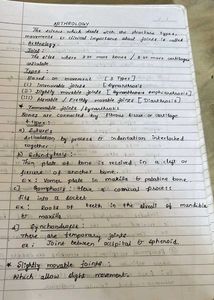 ARTHROLOGY
The science which deals with the structure, types,
movement & clinical importance about joints is called
Arthrology.
Joint:
The site where 2 or more bones / 2 or more cartilages
articulate
Types:
Based on movement [3 Types]
(i) Immovable joints [Synarthrosis]
(ii) Slightly movable joints [Synarthrosis amphiarthrosis]
(iii) Movable / Freely movable joints [Diarthrosis]
* Immovable joints / Synarthrosis
Bones are connected by fibrous tissue or cartilage
4 types:
a) Suture
Articulation by process & indentation interlocked
together
b) Schindylesis:-
Thin plate of bone is received in a cleft or
fissure of another bone.
Ex: Vomer plate in maxilla & palatine bone.
c) Gomphosis:- conical process
fits into a socket
Ex: Roots of teeth in the alveoli of mandible
& maxilla
d) Synchondroses:-
These are temporary joints.
ex: Joint between occipital & sphenoid.
* Slightly movable joints:
Which allow slight movement.